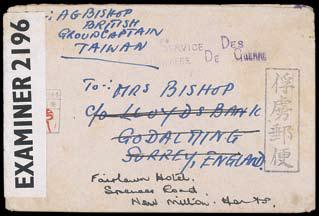 : A G BISHOP
BRITISH
GROUP CAPTAIN
TAIWAN
EXAMINER 2196
SERVICE DES
DE GUERRE
To:- MRS BISHOP
c/o LLOYDS BANK
GODALMING
SURREY, ENGLAND
俘虜郵便
Fairlawn Hotel.
Spencer Road
New Milton. Hants